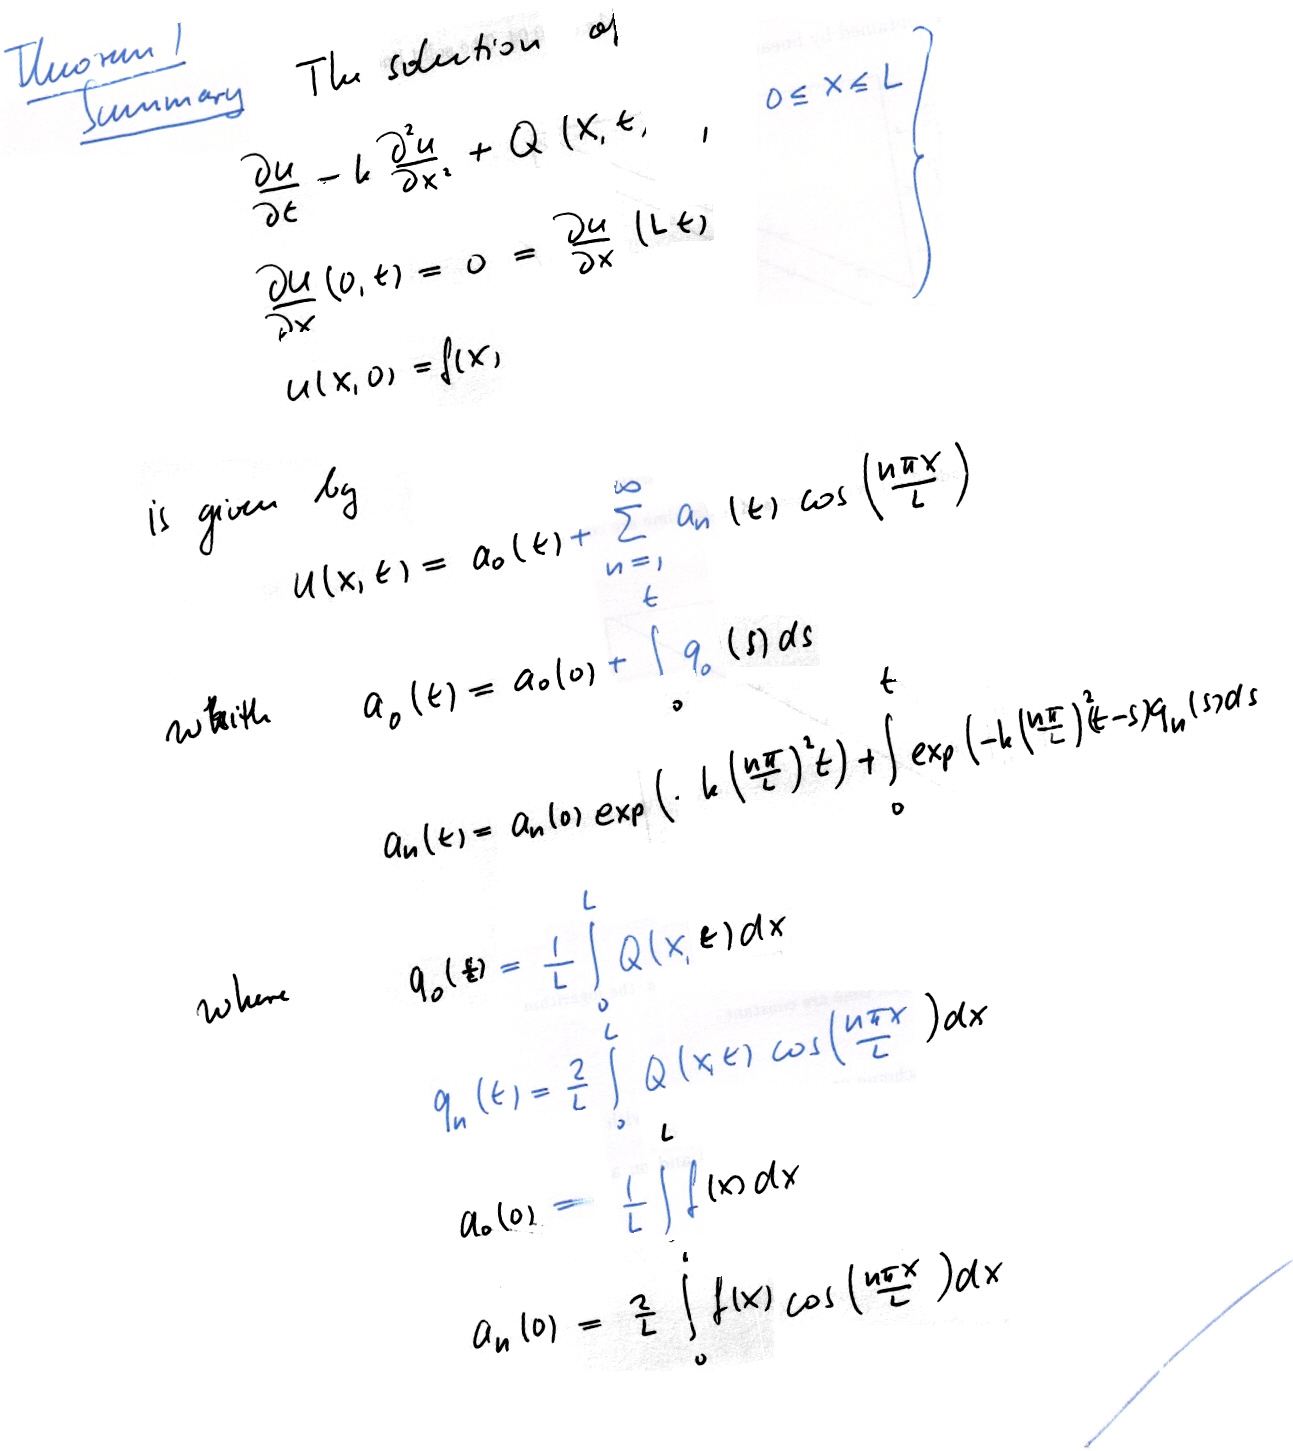 Theorem 1
Summary
The solution of
∂u/∂t - k ∂²u/∂x² + Q(x, t, , 0 ≤ x ≤ L
∂u/∂x (0, t) = 0 = ∂u/∂x (L t)
u(x, 0) = f(x)
is given by
u(x, t) = a₀(t) + ∑_{n=1}^{∞} aₙ(t) cos(nπx/L)
with a₀(t) = a₀(0) + ∫₀ᵗ q₀(s) ds
aₙ(t) = aₙ(0) exp(- k(nπ/L)² t) + ∫₀ᵗ exp(-k(nπ/L)²(t-s)) qₙ(s) ds
where q₀(t) = 1/L ∫₀ᴸ Q(x, t) dx
qₙ(t) = 2/L ∫₀ᴸ Q(x, t) cos(nπx/L) dx
a₀(0) = 1/L ∫ᴸ f(x) dx
aₙ(0) = 2/L ∫₀ᴸ f(x) cos(nπx/L) dx